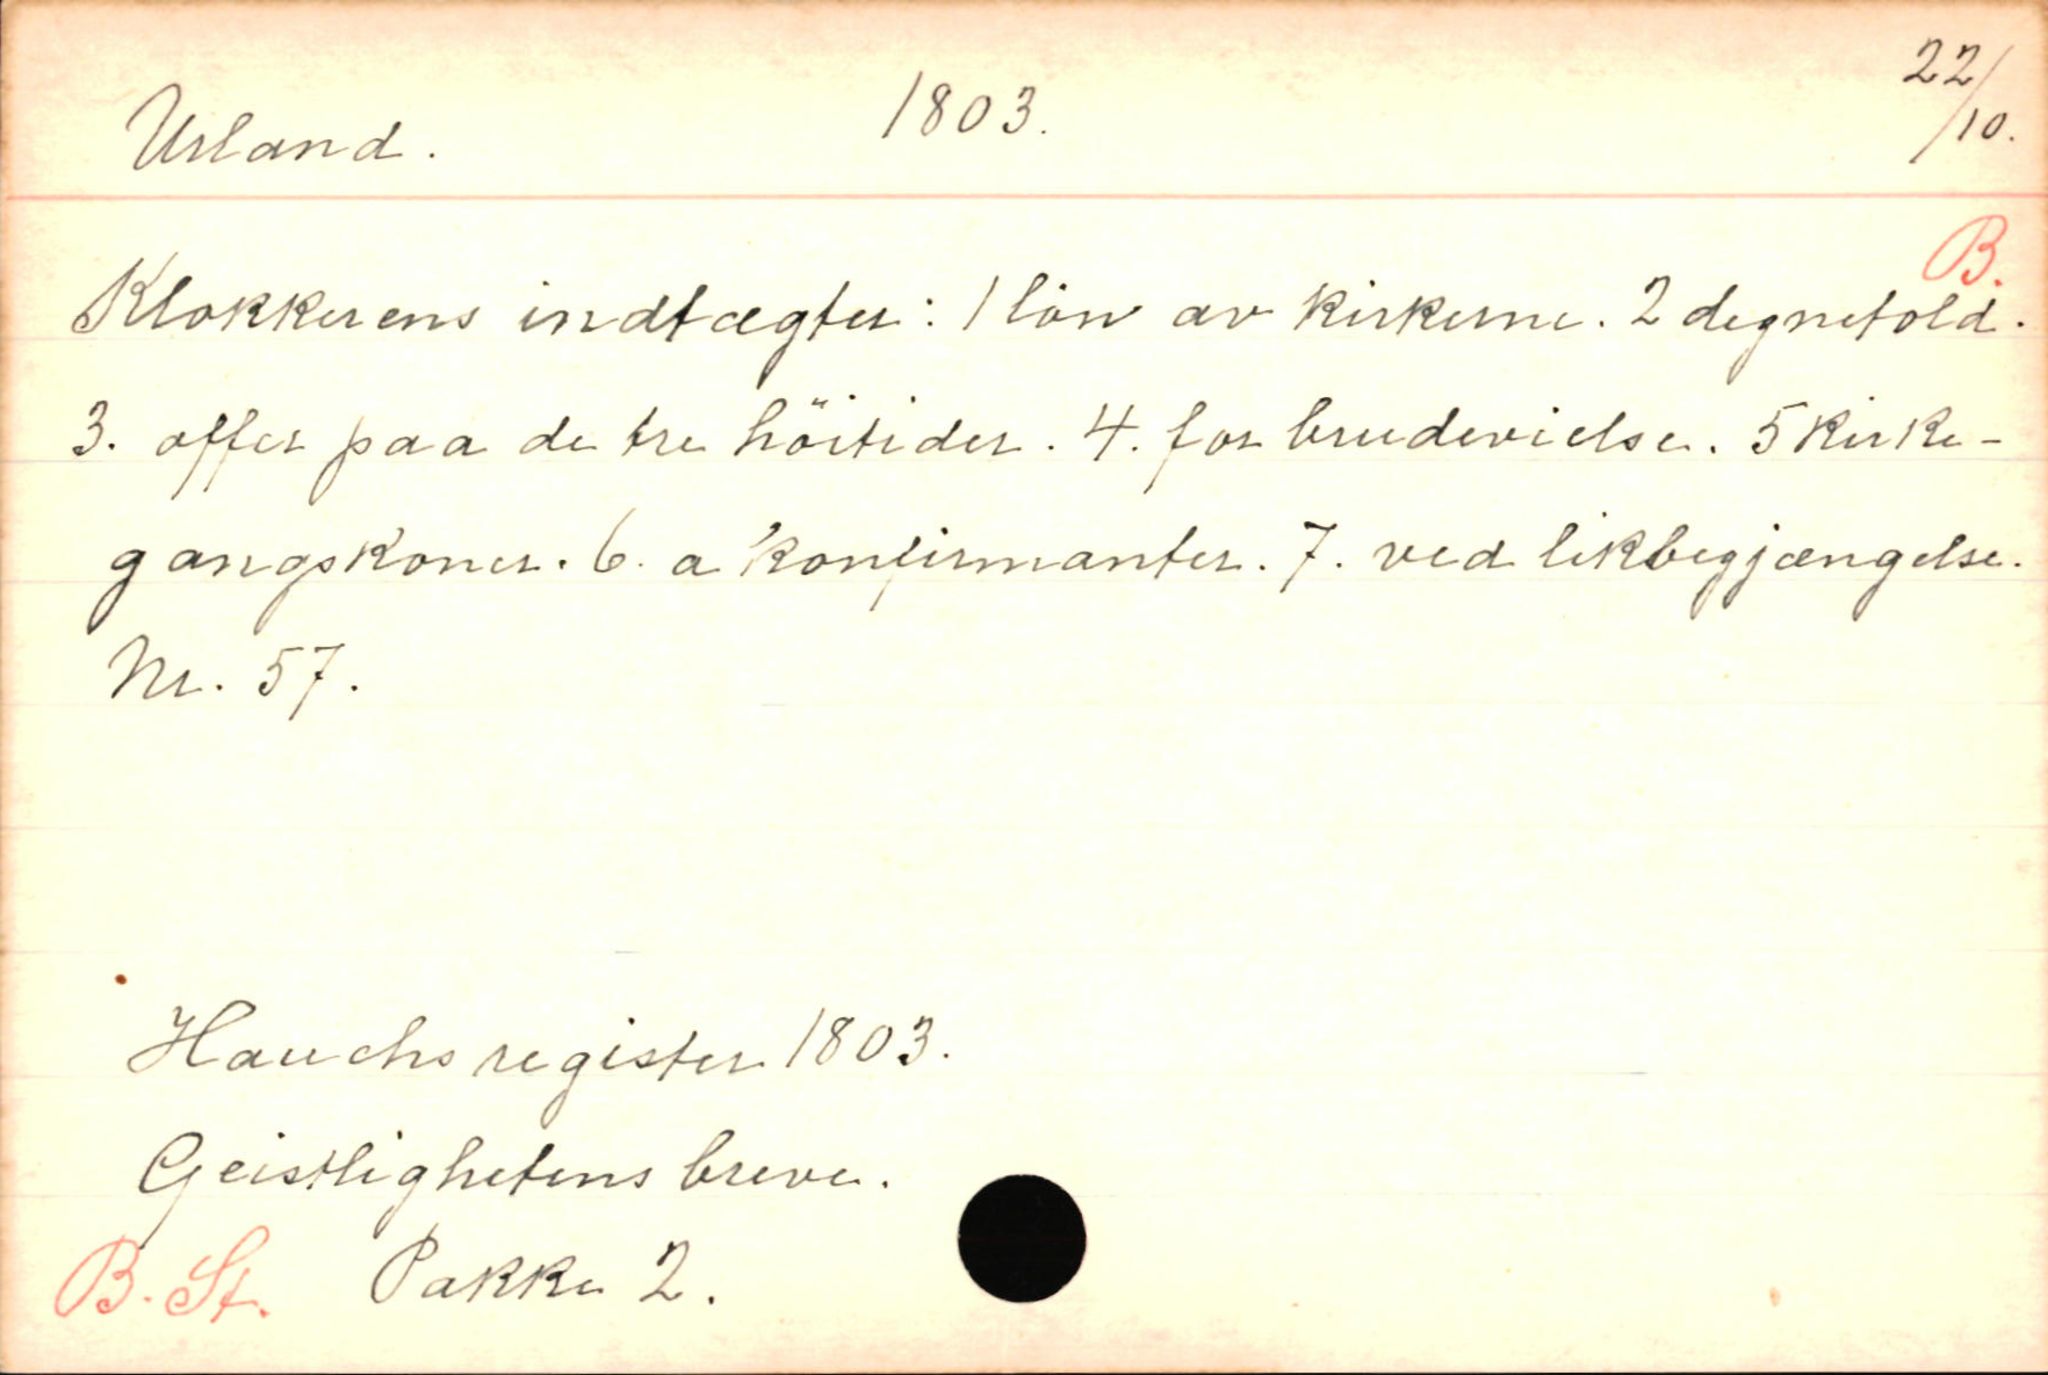 Urland. 1803. 22/10.
B.
Klokkerens indtægter: 1 lön av kirkerne. 2 degnetold.
3. offer paa de tre höitider. 4. for brudevielse. 5 kirke-
gangskoner. 6. a konfirmanter. 7. ved likbegjængelse.
Nr. 57.
Hauchs register 1803.
Geistlighetens breve.
B. St. Pakke 2.